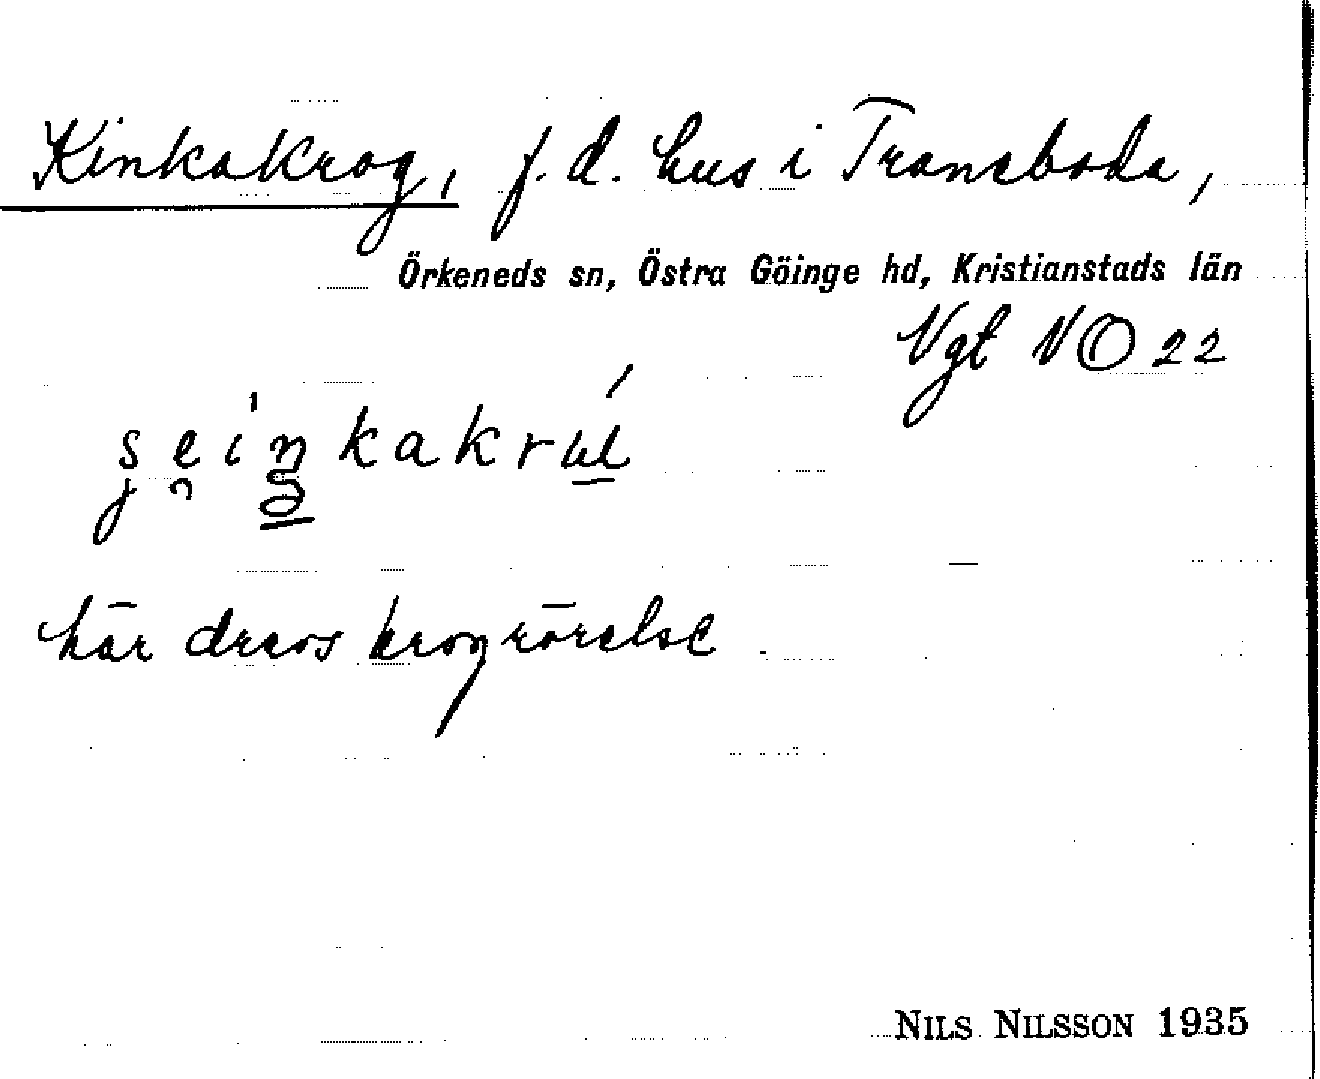 Kinkakrog, f.d. hus i Traneboda,
Örkeneds sn, Östra Göinge hd, Kristianstads län
Vgt NO 22
här drevs krogrörelse.
NILS NILSSON 1935